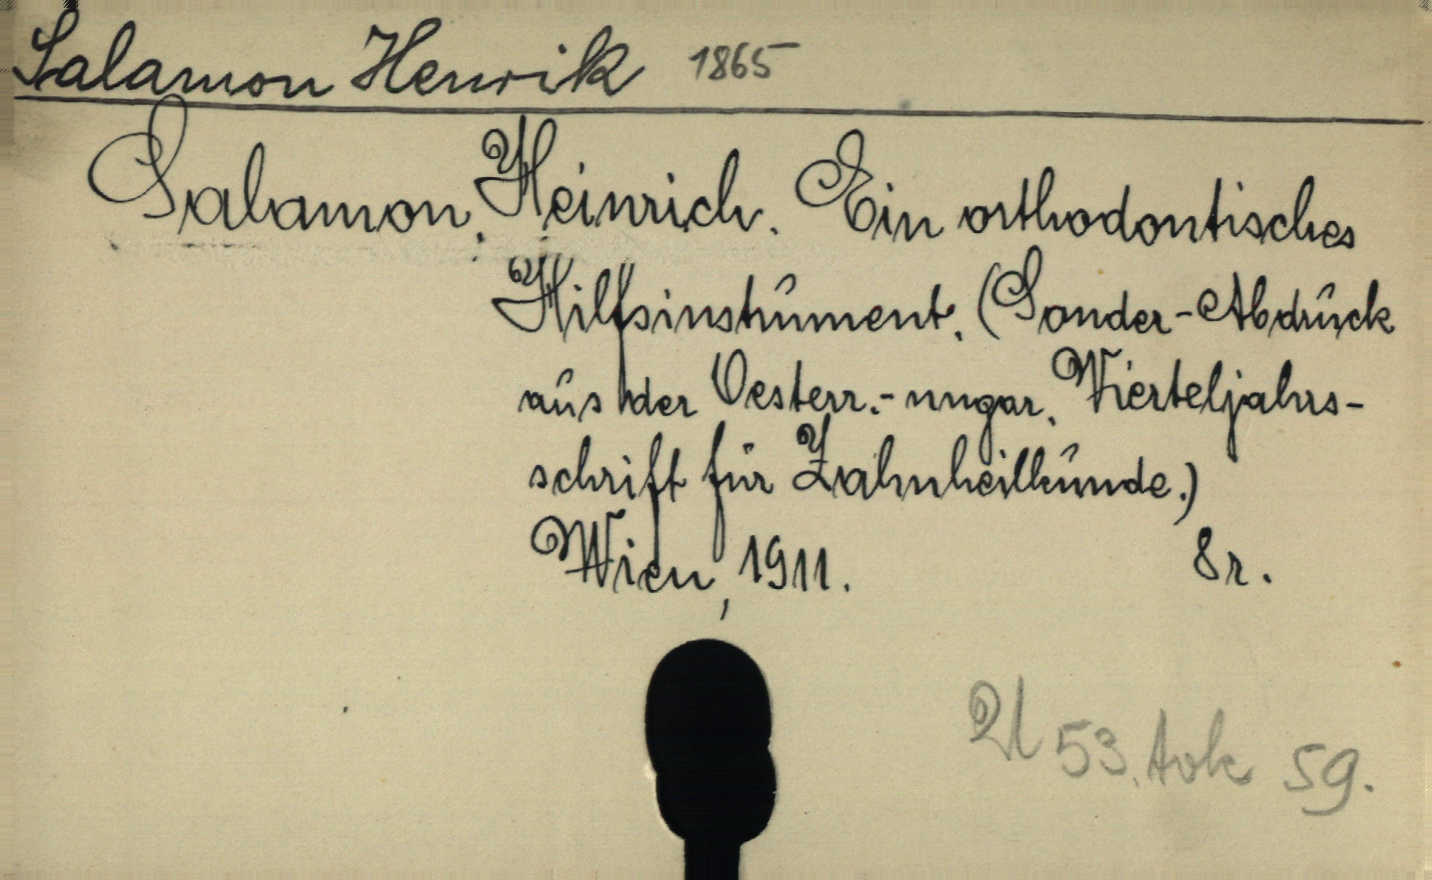 Salamon Henrik 1865
Salamon, Heinrich. Ein orthodontisches
Hilfsinstrument. (Sonder-Abdruck
aus der Oesterr.-ungar. Vierteljahrs-
schrift für Zahnheilkunde.)
Wien, 1911. 8r.
53. tok 59.